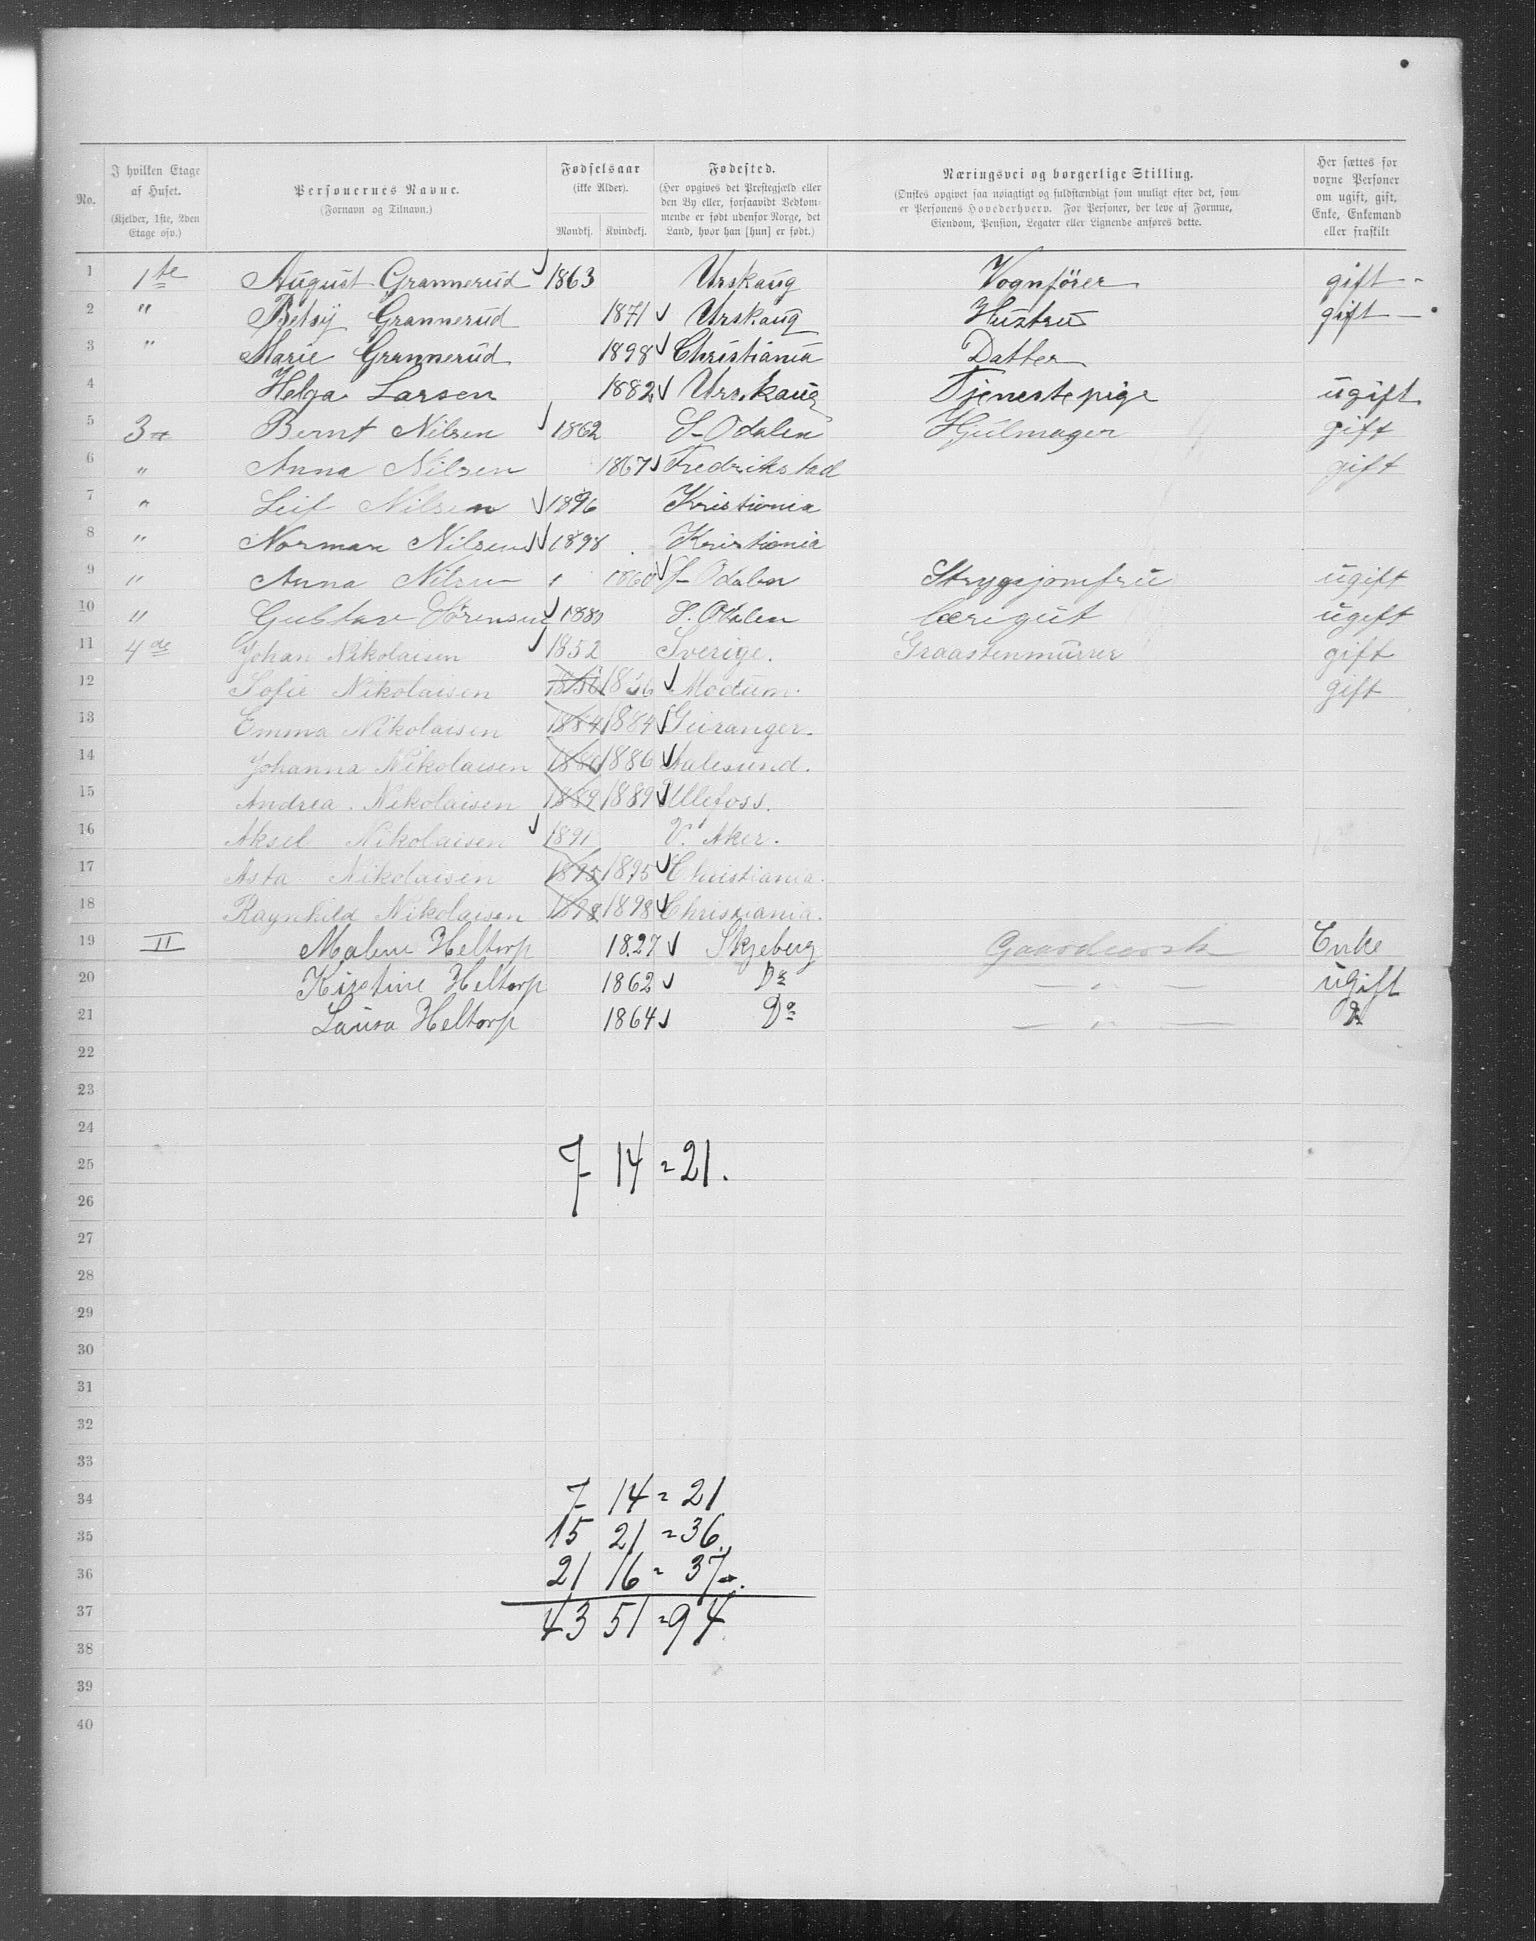 No.
I hvilken Etage af Huset.
(Kjelder, 1ste, 2den Etage osv.)
Personernes Navne.
(Fornavn og Tilnavn.)
Fødselsaar
(ikke Alder).
Mandkj. Kvindekj.
Fødested.
(Her opgives det Prestegjæld eller
den By eller, forsaavidt Vedkom-
mende er født udenfor Norge, det
Land, hvor han [hun] er født.)
Næringsvei og borgerlige Stilling.
(Ønskes opgivet saa nøiagtigt og fuldstændigt som muligt efter det, som
er Personens Hovederhverv. For Personer, der leve af Formue,
Eiendom, Pension, Legater eller Lignende anføres dette.
Her sættes for
voxne Personer
om ugift, gift,
Enke, Enkemand
eller fraskilt
1 1te August Grannerud 1863 Urskaug Vognfører gift -
2 " Betsy Grannerud 1871 Urskaug Hustru gift -
3 " Marie Grannerud 1898 Christiania Datter
4 Helga Larsen 1882 Urskaug Tjenestepige ugift
5 3 Bernt Nilsen 1862 S-Odalen Hjulmager gift
6 " Anna Nilsen 1867 Fredrikstad gift
7 " Leif Nilsen 1896 Kristiania
8 " Norman Nilsen 1898 Kristiania
9 " Anna Nilsen 1860 S-Odalen Strygejomfru ugift
10 " Gustav Sørensen 1880 S. Odalen læregut ugift
11 4de Johan Nikolaisen 1852 Sverige. Graastenmurer gift
12 Sofie Nikolaisen 1856 1856 Modum. gift
13 Emma Nikolaisen 1884 1884 Geiranger.
14 Johanna Nikolaisen 1886 1886 Aalesund.
15 Andrea Nikolaisen 1889 1889 Ulefoss.
16 Aksel Nikolaisen 1891 V. Aker.
17 Asta Nikolaisen 1895 1895 Christiania.
18 Ragnhild Nikolaisen 1898 1898 Christiania.
19 II Malene Heltorp 1827 Skjeberg Enke
20 Kirstine Heltorp 1862 Do — " — ugift
21 Laura Heltorp 1864 Do — " — Do
22
23
24
25 7 14 = 21.
26
27
28
29
30
31
32
33
34 7 14 = 21
35 15 21 = 36.
36 21 16 = 37.
37 43 51 = 94
38
39
40